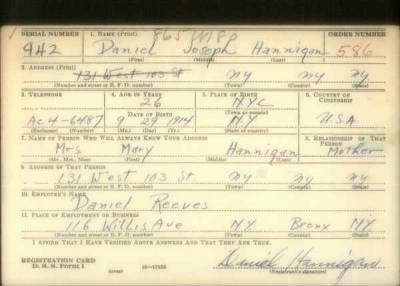 SERIAL NUMBER 1. NAME (Print) ORDER NUMBER
942 Daniel Joseph Hannigan 586
(First) (Middle) (Last)
2. ADDRESS (Print)
131 West 103 St NY NY NY
(Number and street or R. F. D. number) (Town) (County) (State)
3. TELEPHONE 4. AGE IN YEARS 5. PLACE OF BIRTH 6. COUNTRY OF CITIZENSHIP
26 NYC
(Town or county)
DATE OF BIRTH
Ac 4-6487 9 29 1914 NY USA
(Exchange) (Number) (Mo.) (Day) (Yr.) (State or country)
7. NAME OF PERSON WHO WILL ALWAYS KNOW YOUR ADDRESS 8. RELATIONSHIP OF THAT PERSON
Mrs Mary Hannigan Mother
(Mr., Mrs., Miss) (First) (Middle) (Last)
9. ADDRESS OF THAT PERSON
131 West 103 St NY NY NY
(Number and street or R. F. D. number) (Town) (County) (State)
10. EMPLOYER'S NAME
Daniel Reeves
11. PLACE OF EMPLOYMENT OR BUSINESS
116 Willis Ave NY Bronx NY
(Number and street or R. F. D. number) (Town) (County) (State)
I AFFIRM THAT I HAVE VERIFIED ABOVE ANSWERS AND THAT THEY ARE TRUE.
REGISTRATION CARD
D. S. S. Form 1 (over) Daniel Hannigan
(Registrant's signature)